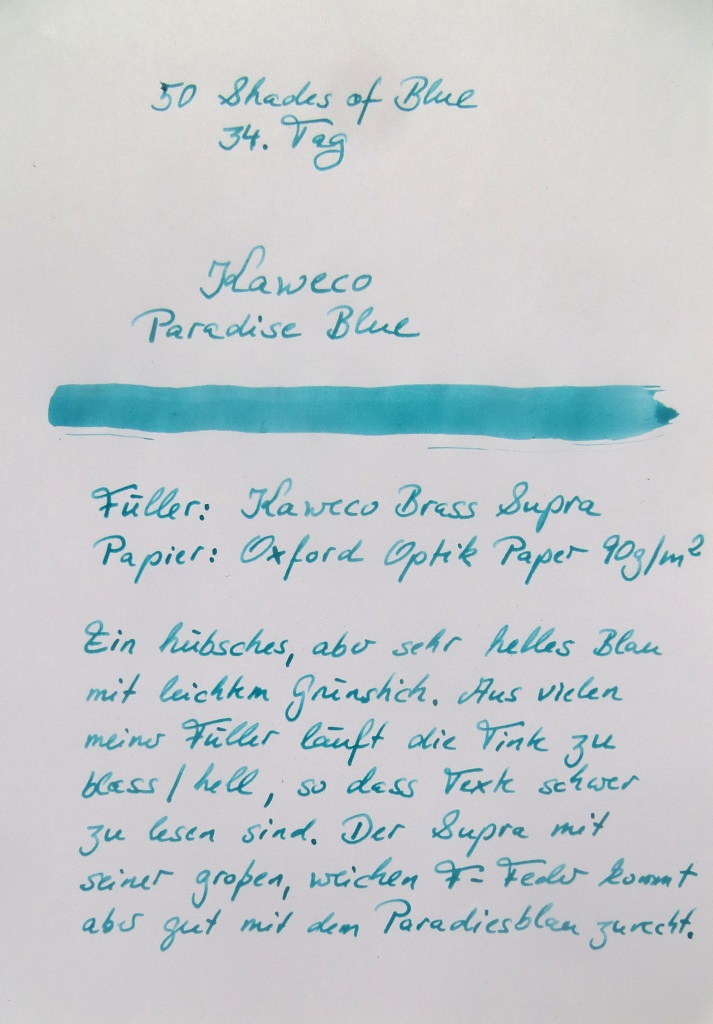 50 Shades of Blue
34. Tag
Kaweco
Paradise Blue
Füller: Kaweco Brass Supra
Papier: Oxford Optik Paper 90g/m²
Ein hübsches, aber sehr helles Blau
mit leichtem Grünstich. Aus vielen
meiner Füller läuft die Tinte zu
blass/hell, so dass Texte schwer
zu lesen sind. Der Supra mit
seiner großen, weichen F-Feder kommt
aber gut mit dem Paradiesblau zurecht.